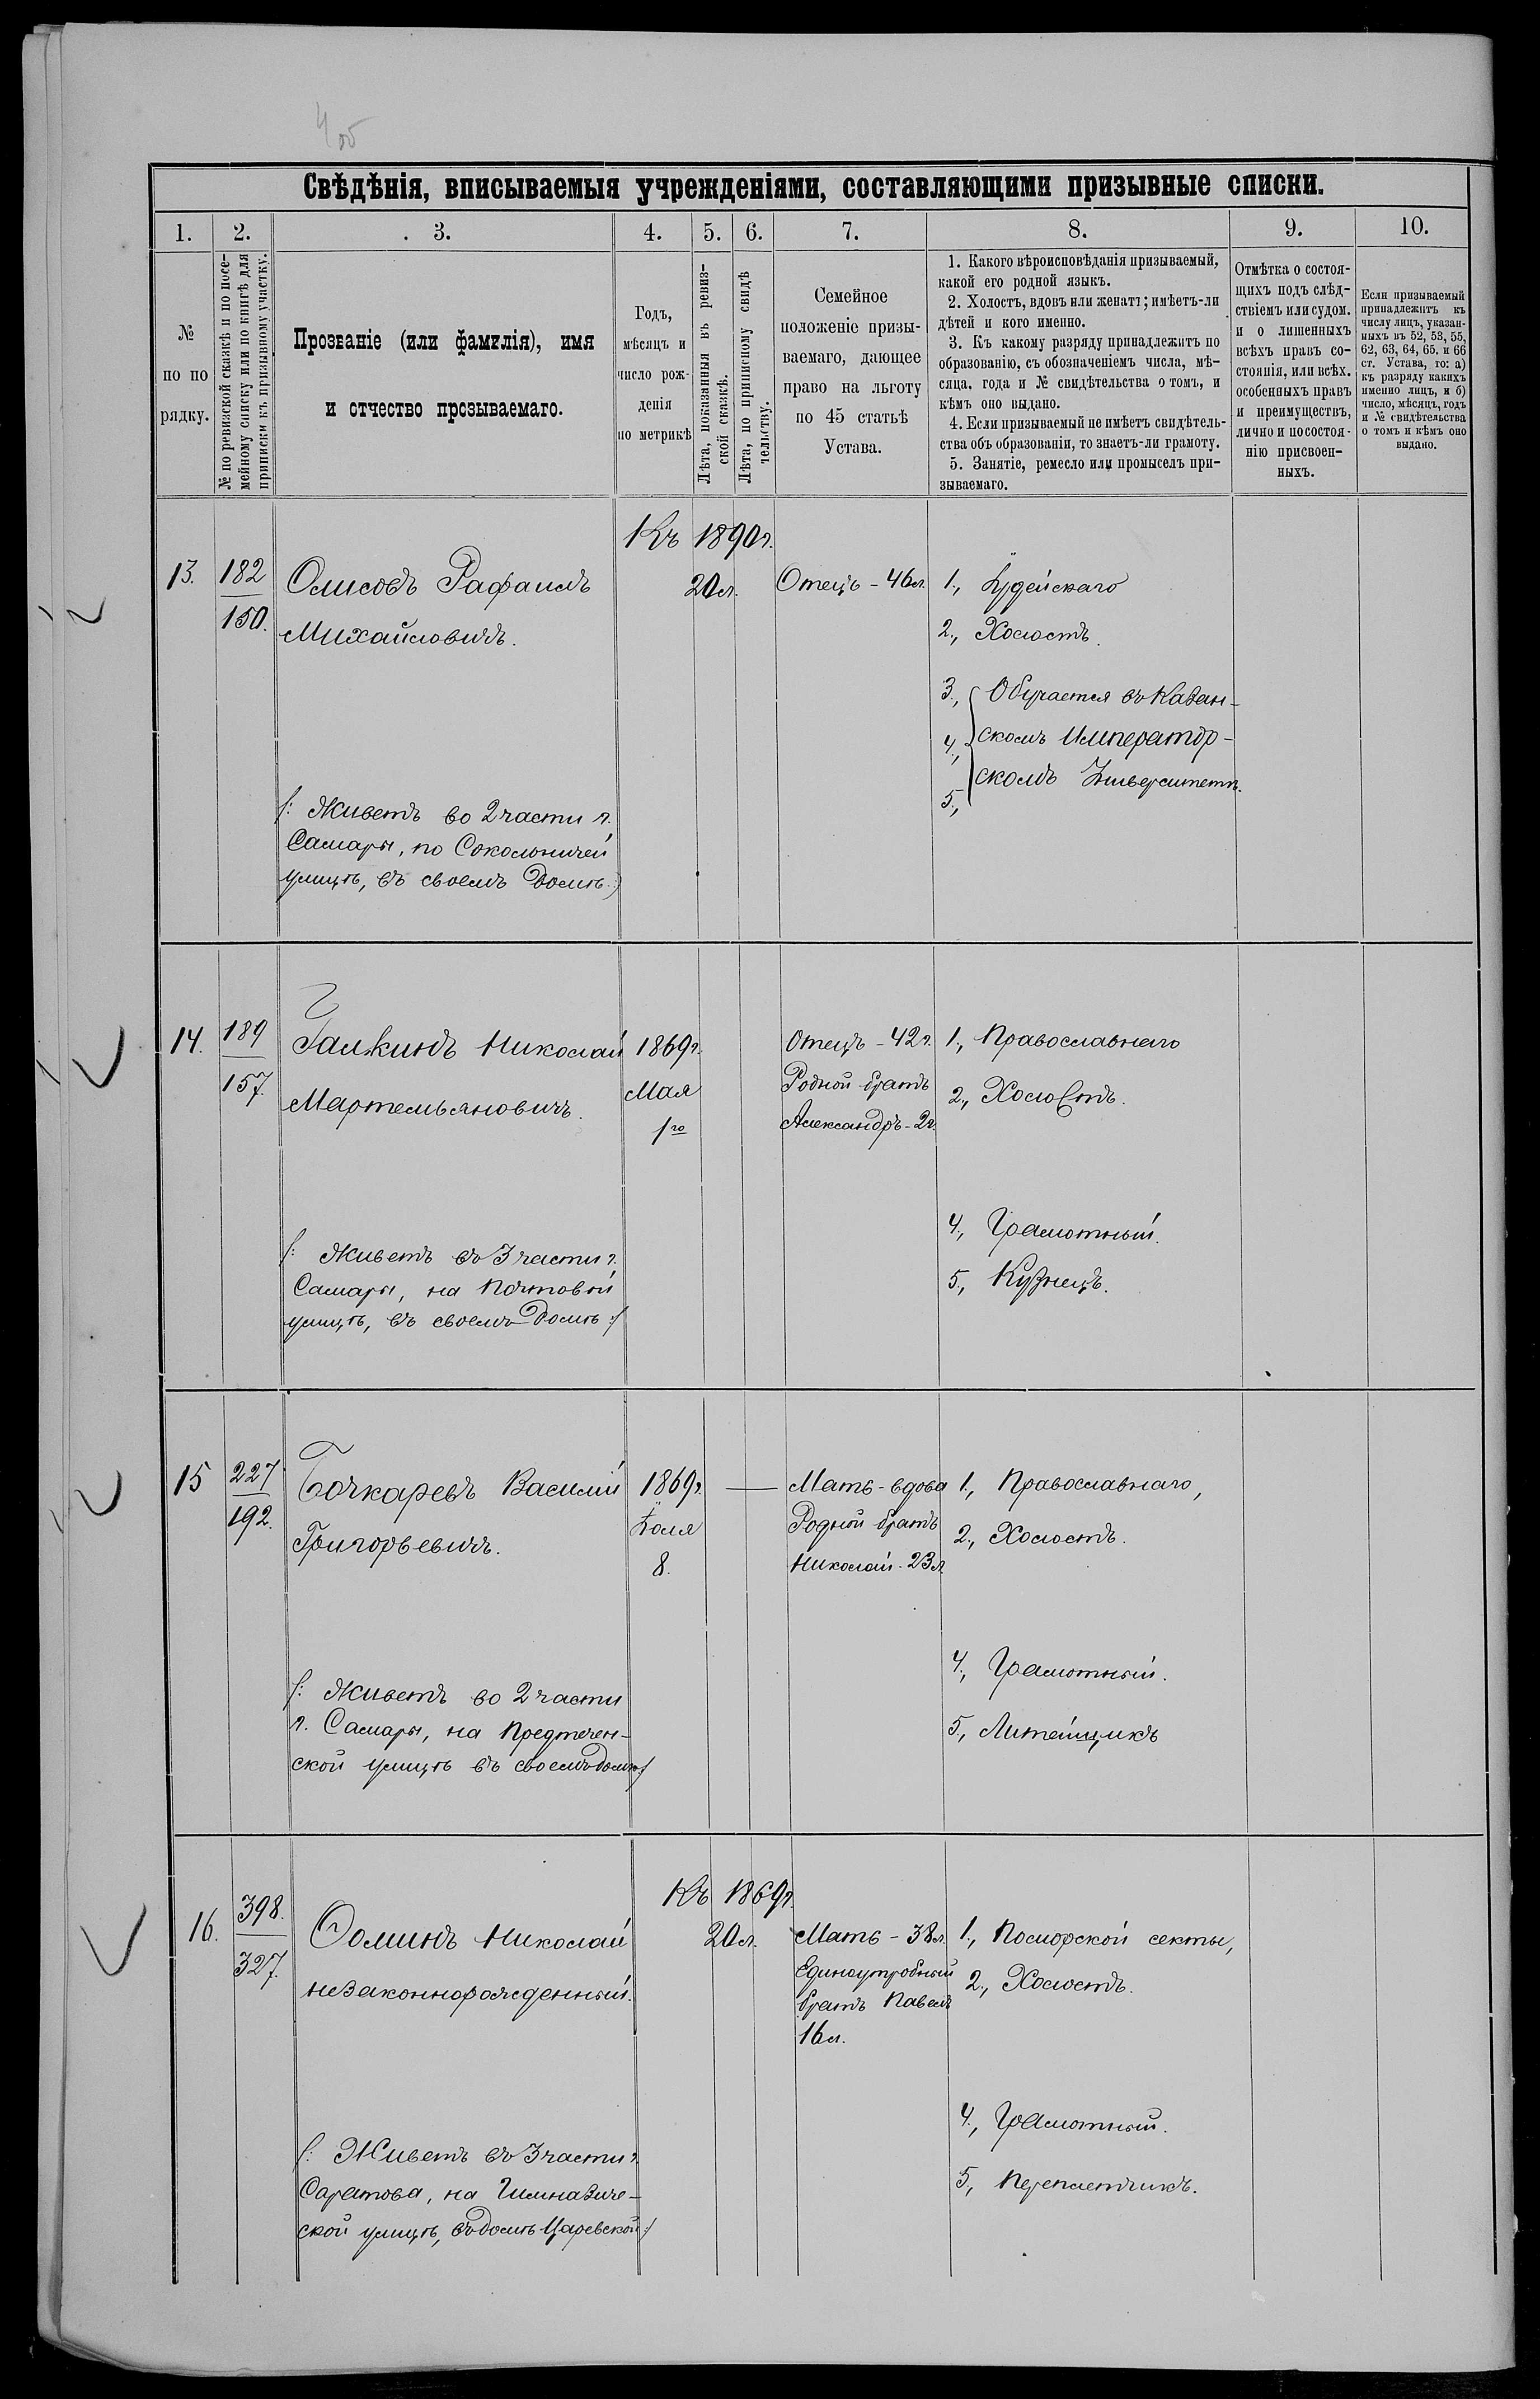 4 об
Свѣдѣнія, вписываемыя учрежденіями, составляющими призывные списки.
1. 2. 3. 4. 5. 6. 7. 8. 9. 10.
№
по по
рядку.
№ по ревизской сказкѣ и по посе-
мейному списку или по книгѣ для
приписки къ призывному участку.
Прозваніе (или фамилія), имя
и отчество прєзываемаго.
Годъ,
мѣсяцъ и
число рож-
денія
по метрикѣ
Лѣта, показанныя въ ревиз-
ской сказкѣ.
Лѣта, по приписному свидѣ
тельству.
Семейное
положеніе призы-
ваемаго, дающее
право на льготу
по 45 статьѣ
Устава.
1. Какого вѣроисповѣданія призываемый,
какой его родной языкъ.
2. Холостъ, вдовъ или женатъ; имѣетъ-ли
дѣтей и кого именно.
3. Къ какому разряду принадлежитъ по
образованію, съ обозначеніемъ числа, мѣ-
сяца, года и № свидѣтельства о томъ, и
кѣмъ оно выдано.
4. Если призываемый не имѣетъ свидѣтель-
ства объ образованіи, то знаетъ-ли грамоту.
5. Занятіе, ремесло или промыселъ при-
зываемаго.
Отмѣтка о состоя-
щихъ подъ слѣд-
ствіемъ или судом.
и о лишенныхъ
всѣхъ правъ со-
стоянія, или всѣх.
особенныхъ правъ
и преимуществъ,
лично и по состоя-
нію присвоен-
ныхъ.
Если призываемый
принадлежитъ къ
числу лицъ, указан-
ныхъ въ 52, 53, 55,
62, 63, 64, 65. и 66
ст. Устава, то: а)
къ разряду какихъ
именно лицъ, и б)
число, мѣсяцъ, годъ
и № свидѣтельства
о томъ и кѣмъ оно
выдано.
13.
182
150.
Олисовъ Рафаилъ
Михайловичъ.
/: Живетъ во 2 части г.
Самары, по Сокольничей
улицѣ, въ своемъ домѣ :/
Къ 1890 г.
20 л.
Отецъ - 46 л.
1., Іудейскаго
2., Холостъ.
3., Обучается въ Казан-
4., скомъ Император-
скомъ Университетѣ.
5.,
14.
189
157.
Галкинъ Николай
Мартемьяновичъ.
/: Живетъ въ 3 части г.
Самары, на Почтовой
улицѣ, въ своемъ домѣ :/
1869 г.
Мая
1го
Отецъ - 42 г.
Родной братъ
Александръ - 2 г.
1., Православнаго
2., Холостъ.
4., Грамотный.
5., Кузнецъ.
15
227
192.
Бочкаревъ Василій
Григорьевичъ.
/: Живетъ во 2 части
г. Самары, на Предтечен-
ской улицѣ въ своемъ домѣ :/
1869 г.
Іюля
8.
Мать - вдова
Родной братъ
Николай - 23 л.
1., Православнаго,
2., Холостъ.
4., Грамотный.
5., Литейщикъ
16.
398.
327.
Ѳоминъ Николай
незаконнорожденный.
/: Живетъ въ 3 части г.
Саратова, на Гимназиче-
ской улицѣ, въ домѣ Царевской :/
Къ 1869 г.
20 л.
Мать - 38 л.
Единоутробный
братъ Павелъ
16 л.
1., Поморской секты,
2., Холостъ.
4., Грамотный.
5., Переплетчикъ.